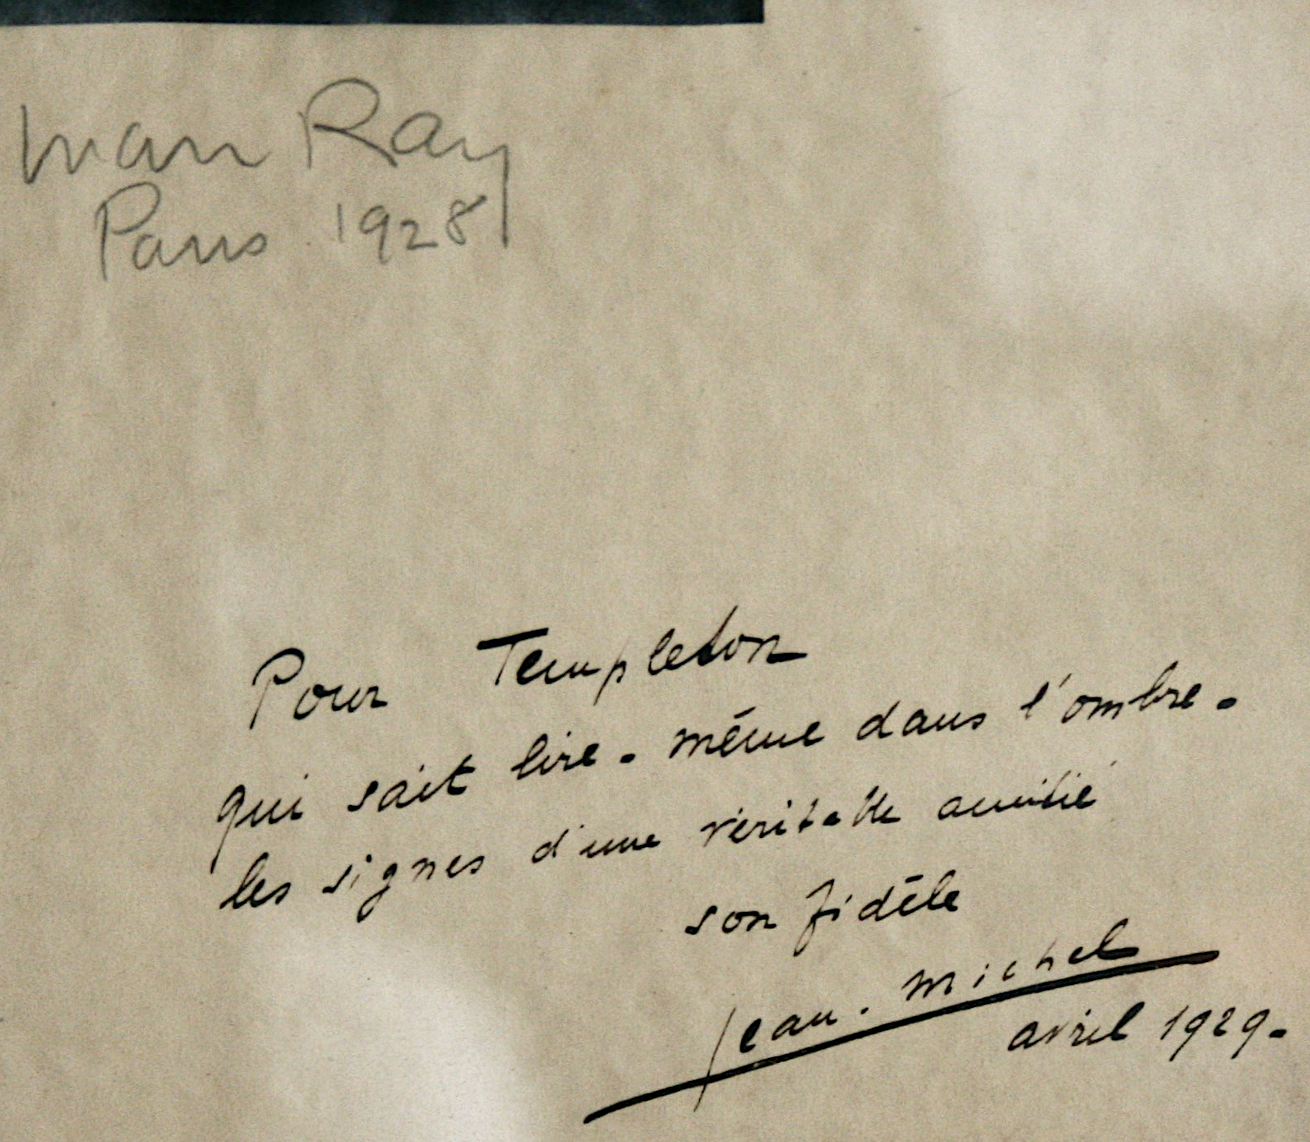 Man Ray
Paris 1928
Pour Templeton
qui sait lire. même dans l'ombre.
les signes d'une véritable amitié
son fidèle
Jean. Michel
avril 1929.